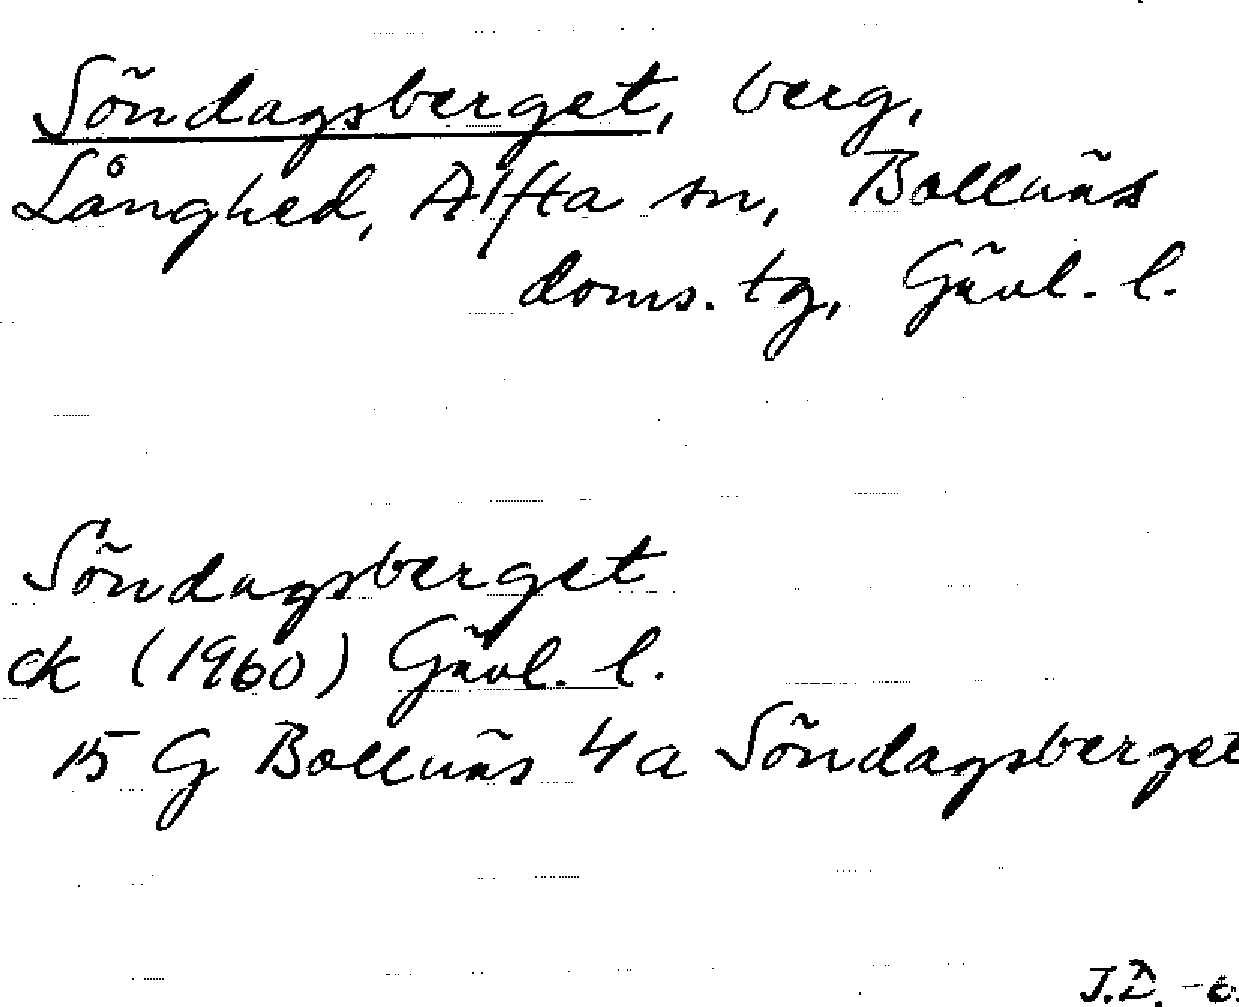 Söndagsberget, berg,
Långhed, Alfta sn, Bollnäs
doms. tg, Gävl. l.
Söndagsberget
ek (1960) Gävl. l.
15 G Bollnäs 4a Söndagsberget
J.D.